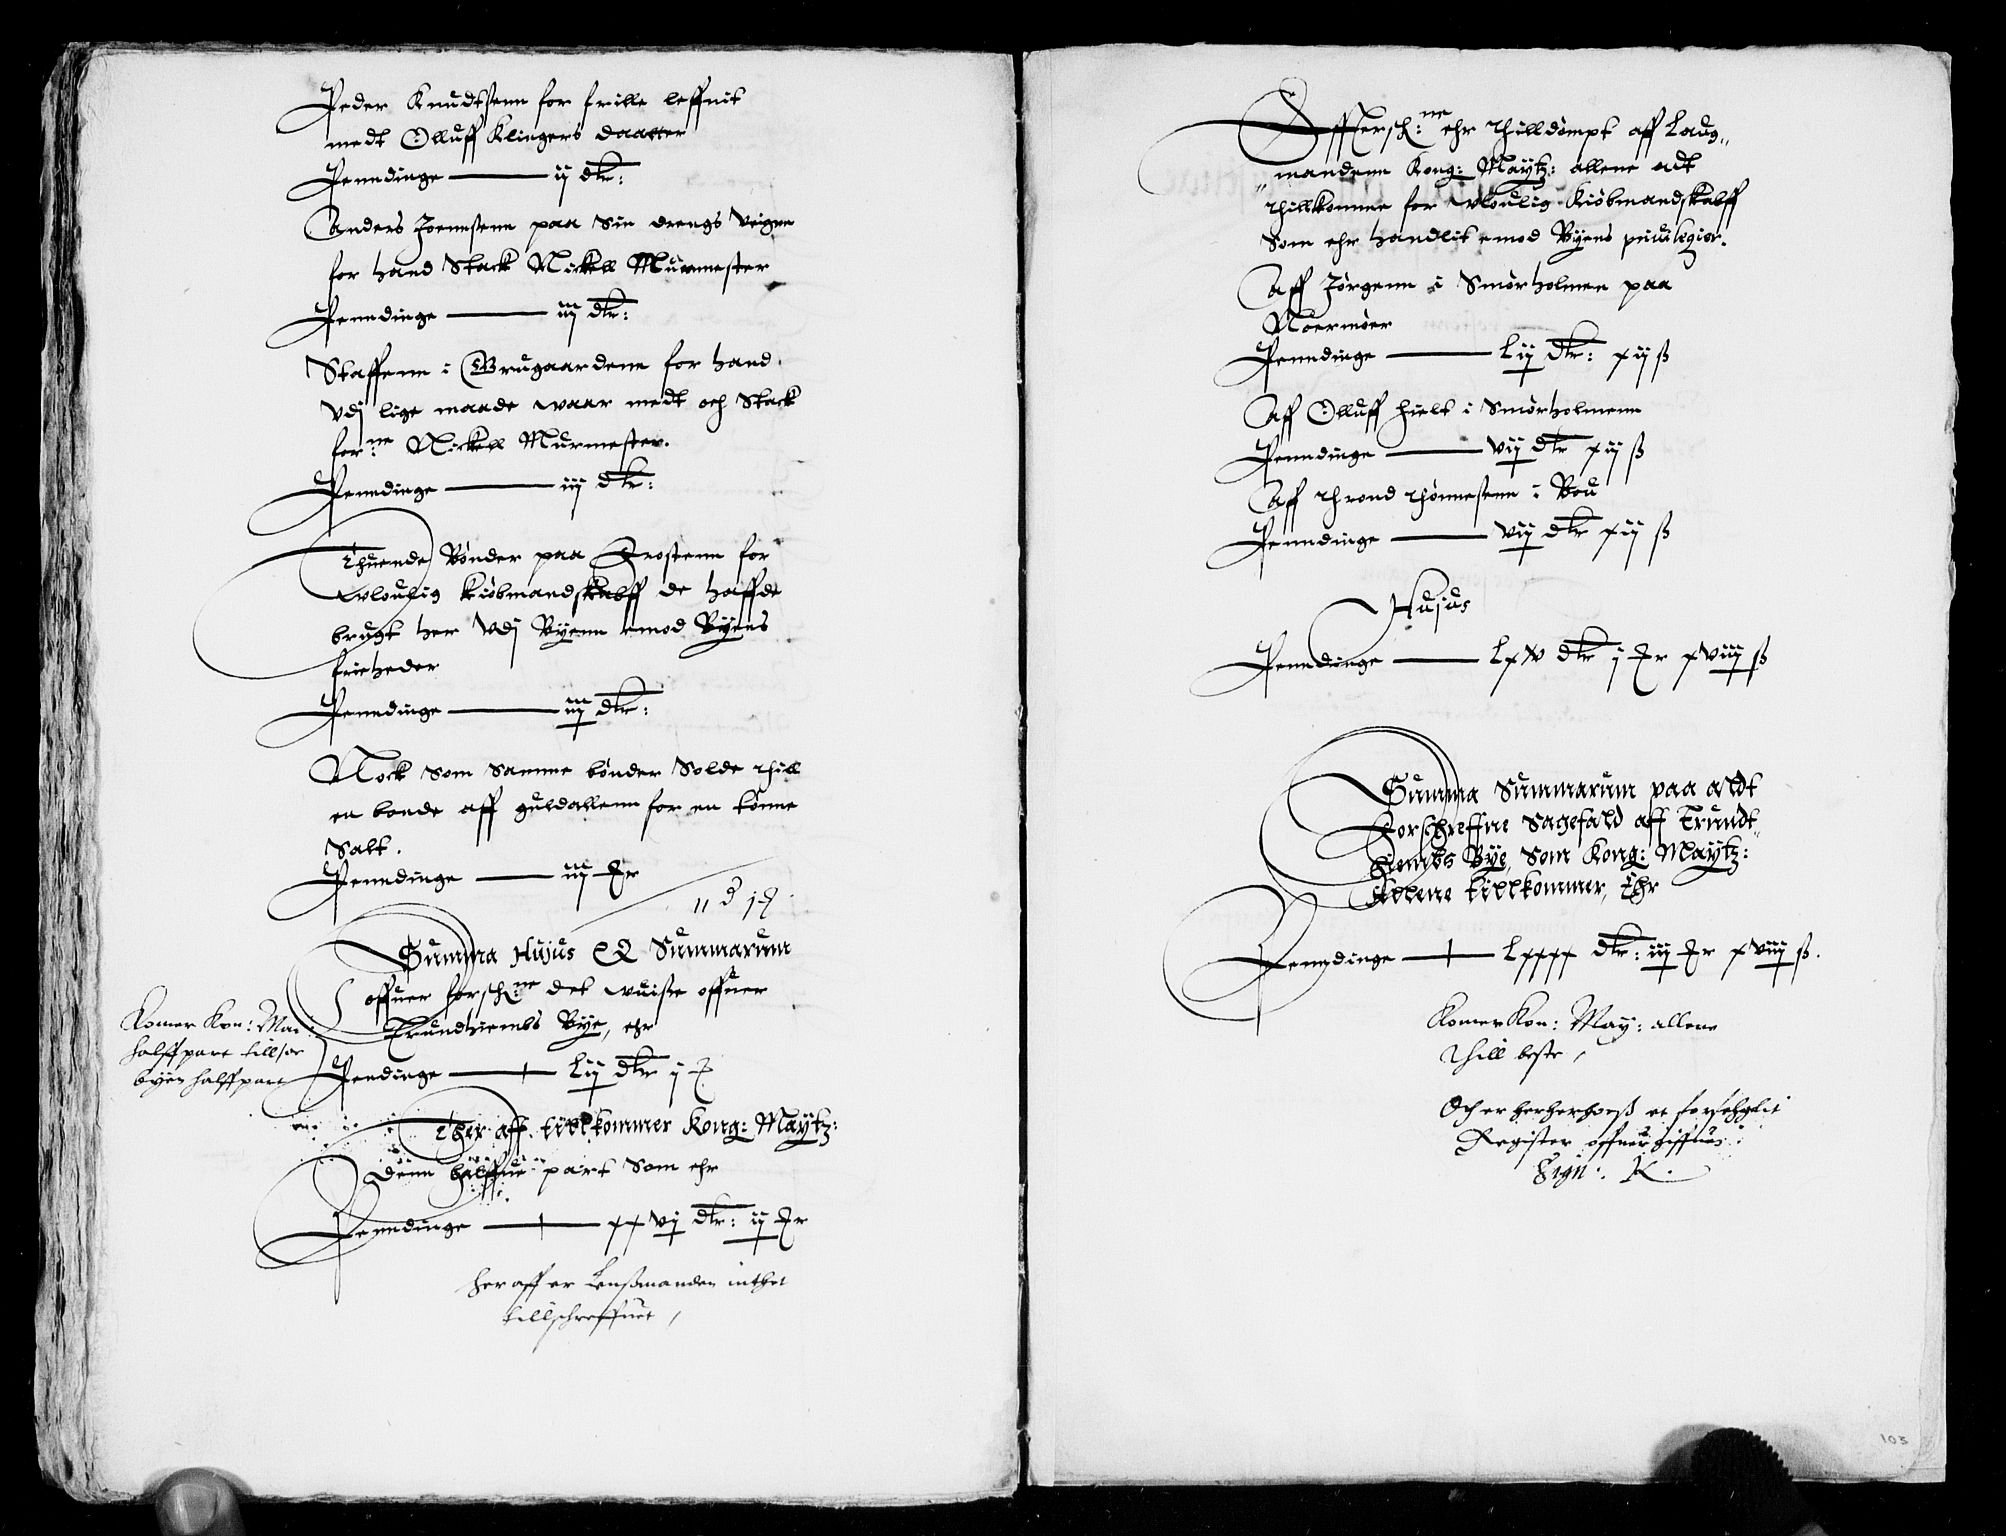 Peder Knudtsenn for frille leffnit
medt Olluff Klingers daatter
Penndinge — ij dlr:
Anders Joennsenn paa Sin drengs Veigne
for hand Stack Nickell Muremester
Penndinge — iij dlr:
Staffenn i Brugaardenn for hand
Vdj lige maade waar medt och Stack
for:ne Nickell Murmester.
Penndinge — iij dlr:
Thuende Bønder paa Frostenn for
vlouflig kiøbmandskabff de haffde
brugt her Vdj Byenn emod Byens
friheder
Penndinge — iiij dlr:
Nock som samme bønder Solde thill
en bonde aff guldallenn for en tønne
Salt.
Penndinge — iiij Jr
Summa Hujus et Summarum
offuer forsch:ne det wuisse offuer
Trundhiembs Bye, ehr
Komer Kon: Mai:
halff part till oc
byen halff part
Pendinge — Lij dlr j
Ther aff tilkommer Kong: Maytz:
denn halffue part Som ehr
Penndinge — xxvj dlr: ij Jr
her aff er Lensmanden inthet
tillschreffuet /
Aff forsch:ne ehr thilldømpt aff Laug„
„mandenn Kong: Maytz: allene adt
thillkomme for vlouflig Kiøbmandskabff
Som ehr handlit emod Byens priuilegier.
Aff Jørgenn i Smørholmen paa
Noermøer
Penndinge — Lij dlr: xij ß
Aff Olluff hielt i Smørholmenn
Penndinge — vij dlr xij ß
Aff Thrond Thønnesenn i Bou
Penndinge — vij dlr xij ß
Hujus
Penndinge — Lxv dlr j Jr xviij ß
Summa Summarum paa aldt
Forschreffne Sagefald aff Trundt„
hiembs Bye, Som Kong: Maytz:
Allene tilkommer, Ehr
Penndinge — Lxxxx dlr: iij Jr xviij ß.
Komer Kon: May: allene
Thill beste /
Och er her herhoes et forsehglit
Register offuergiffuet:
Sign: K.
103